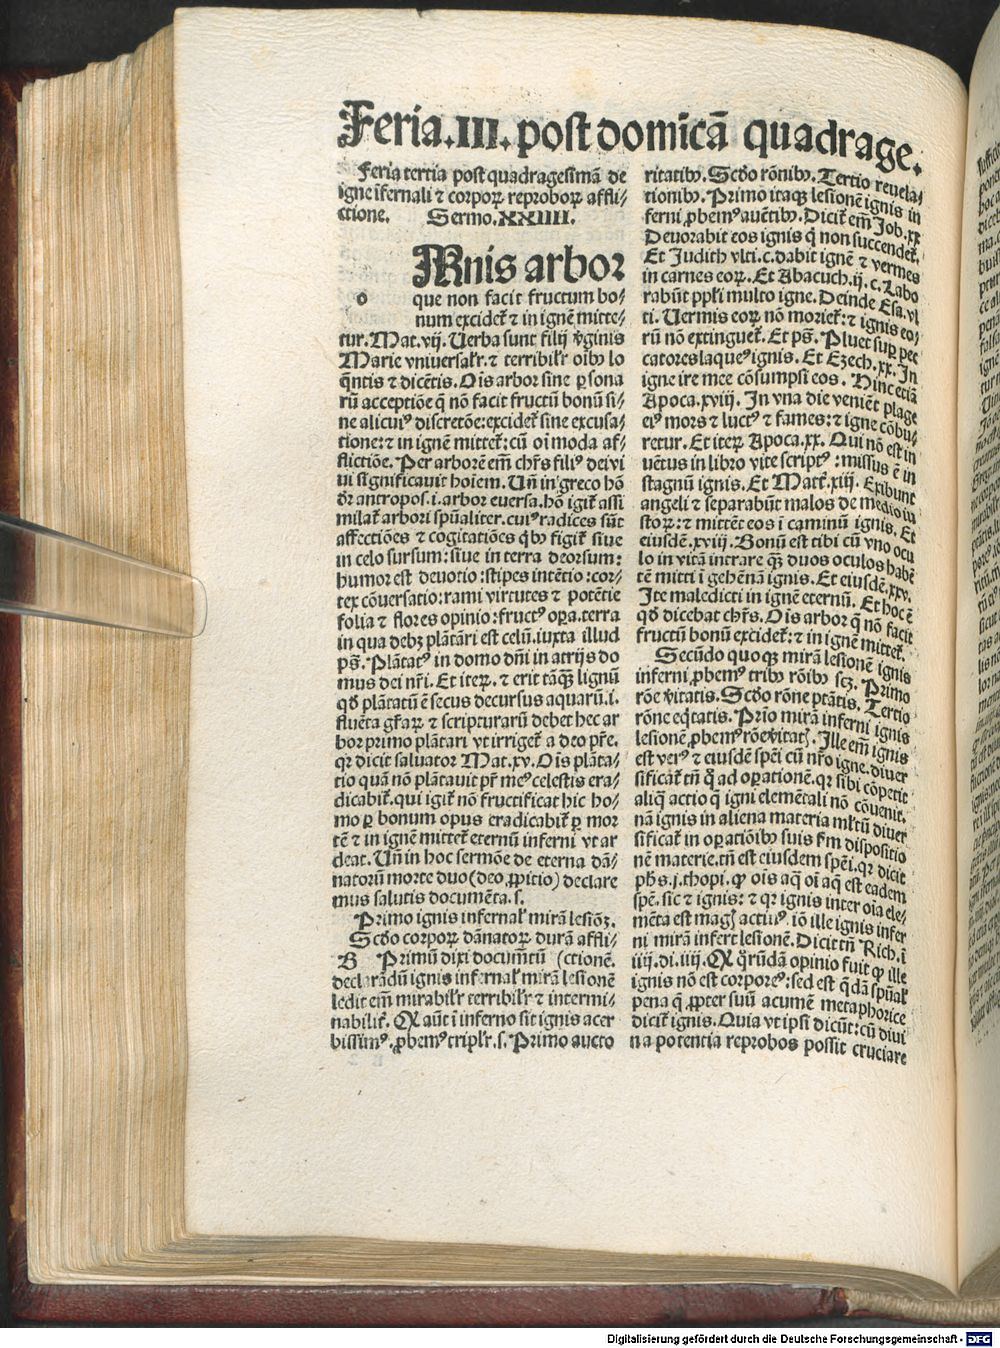 Feria.III.post domicā quadrage.
Feria tertia post quadragesimā de
igne īfernali ⁊ corpoꝝ reproboꝝ affli⸗
ctione. Sermo.XXIIII.
Mnis arbor
o que non facit fructum bo⸗
num excidet̄ ⁊ in ignē mitte⸗
tur. Mat. vij. Uerba sunt filij v̓ginis
Marie vniuersalr̄. ⁊ terribilr̄ oībꝰ lo
q̄ntis ⁊ dicētis. Oīs arbor sine ꝑsona
rū acceptiōe q̄ nō facit fructū bonū si⸗
ne alicuiꝰ discretōe: excidet̄ sine excusa⸗
tione: ⁊ in ignē mittet̄: cū oī moda af⸗
flictiōe. Per arborē em̄ chr̄s filiꝰ dei vi
ui significauit hoīem. Un̄ in greco hō
dr̄ antropos. i. arbor euersa. hō igit̄ assi
milat̄ arbori spūaliter. cuiꝰ radices sūt
affectiōes ⁊ cogitatiōes q̄bꝰ figit̄ siue
in celo sursum: siue in terra deorsum:
humor est deuotio: stipes intētio: cor⸗
tex cōuersatio: rami virtutes ⁊ potētie
folia ⁊ flores opinio: fructꝰ oꝑa. terra
in qua debꝫ plātari est celū. iuxta illud
ps̄. Plātatꝰ in domo dn̄i in atrijs do
mus dei nr̄i. Et iteꝝ. ⁊ erit tāꝗꝫ lignū
qd̓ plātatū ē secus decursus aquarū. i.
fluēta gr̄aꝝ ⁊ scripturarū debet hec ar
bor primo plātari vt irriget̄ a deo pr̄e.
qꝛ dicit saluator Mat. xv. Oīs plāta⸗
tio quā nō plātauit pr̄ meꝰ celestis era⸗
dicabit̄. qui igit̄ nō fructificat hic ho⸗
mo ꝑ bonum opus eradicabit̄ ꝑ mor
tē ⁊ in ignē mittet̄ eternū inferni vt ar
deat. Un̄ in hoc sermōe de eterna dā⸗
natorū morte duo (deo ꝓpitio) declare
mus salutis documēta. s.
Primo ignis infernal̄ mirā lesiōꝫ.
Scd̓o corpoꝝ dānatoꝝ durā affli⸗
B Primū dixi documētū (ctionē.
declarādū ignis infernal̄ mirā lesionē
ledit em̄ mirabilr̄ terribilr̄ ⁊ intermi⸗
nabilit̄. Q aūt ī inferno sit ignis acer
bissimꝰ ꝓbemꝰ triplr̄. s. Primo aucto
ritatibꝰ. Scd̓o rōnibꝰ. Tertio reuela⸗
tionibꝰ. Primo itaqꝫ lesionē ignis in
ferni ꝓbemꝰ auctētibꝰ. Dicit̄ em̄ Job. xx
Deuorabit eos ignis q̄ non succendet̄.
Et Judith vlti. c. dabit ignē ⁊ vermes
in carnes eoꝝ. Et Abacuch. ij. c. Labo
rabūt ppl̄i multo igne. Deinde Esa. vl
ti. Uermis eoꝝ nō moriet̄: ⁊ ignis eo⸗
rū nō extinguet̄. Et ps̄. Pluet suꝑ pec
catores laqueꝰ ignis. Et Ezech. xx. In
igne ire mee cōsumpsi eos. Hinc etiā
Apoca. xviij. In vna die veniēt plage
eiꝰ mors ⁊ luctꝰ ⁊ fames: ⁊ igne cōbu⸗
retur. Et iteꝝ Apoca. xx. Qui nō est in
uētus in libro vite scriptꝰ: missus ē in
stagnū ignis. Et Matt̄. xiij. Exibunt
angeli ⁊ separabūt malos de medio iu
stoꝝ: ⁊ mittēt eos ī caminū ignis. Et
eiusdē. xviij. Bonū est tibi cū vno ocu
lo in vitā intrare ꝗꝫ duos oculos habē
tē mitti ī gehēnā ignis. Et eiusdē. xxv.
Ite maledicti in ignē eternū. Et hoc ē
qd̓ dicebat chr̄s. Oīs arbor q̄ nō facit
fructū bonū excidet̄: ⁊ in ignē mittet̄.
Secūdo quoqꝫ mirā lesionē ignis
inferni ꝓbemꝰ tribꝰ rōibꝰ scꝫ. Primo
rōe v̓itatis. Scd̓o rōne ptātis. Tertio
rōne eq̄tatis. Prīo mirā inferni ignis
lesionē ꝓbemꝰ rōe v̓itatis. Ille em̄ ignis
est verꝰ ⁊ eiusdē spēi cū nr̄o igne. diuer
sificat̄ tn̄ q̄ ad oꝑationē. qꝛ sibi cōpetit
aliq̄ actio q̄ igni elemētali nō cōuenit.
nā ignis in aliena materia ml̄tū diuer
sificat̄ in oꝑatiōibꝰ suis ẜm dispositio
nē materie. tn̄ est eiusdem spēi. qꝛ dicit
ph̄s. j. thopi. ꝙ oīs aq̄ oī aq̄ est eadem
spē. sic ⁊ ignis: ⁊ qꝛ ignis inter oīa ele⸗
mēta est magꝭ actiuꝰ. iō ille ignis infer
ni mirā infert lesionē. Dicit tn̄ Rich. ī
iiij. di. iiij. Q q̄rūdā opinio fuit ꝙ ille
ignis nō est corporeꝰ: sed est q̄dā spūal̄
pena q̄ ꝓpter suū acumē metaphorice
dicit̄ ignis. Quia vt ipsi dicūt: cū diui
na potentia reprobos possit cruciare
Digitalisierung gefördert durch die Deutsche Forschungsgemeinschaft - DFG